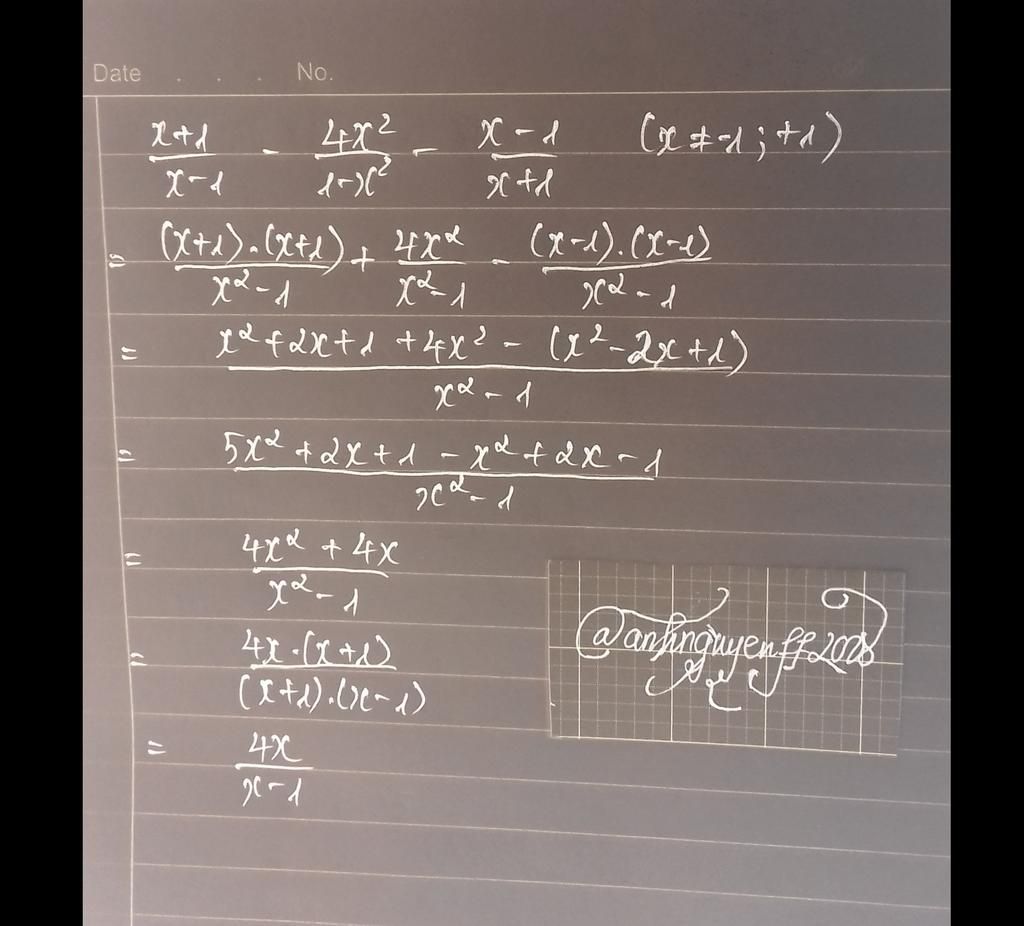 Date . . . No.
x+1/x-1 - 4x²/1-x² - x-1/x+1 (x≠-1;+1)
= (x+1).(x+1)/x²-1 + 4x²/x²-1 - (x-1).(x-1)/x²-1
= x²+2x+1+4x²-(x²-2x+1)/x²-1
= 5x²+2x+1-x²+2x-1/x²-1
= 4x²+4x/x²-1
= 4x.(x+1)/(x+1).(x-1)
= 4x/x-1
@anhnguyenff2008